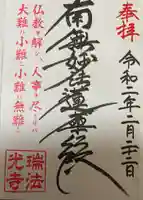 奉拝
令和二年二月二十二日
南無妙法蓮華経
仏教を解し、人事を尽くせば
大難は小難に小難は無難に
瑞法
光寺